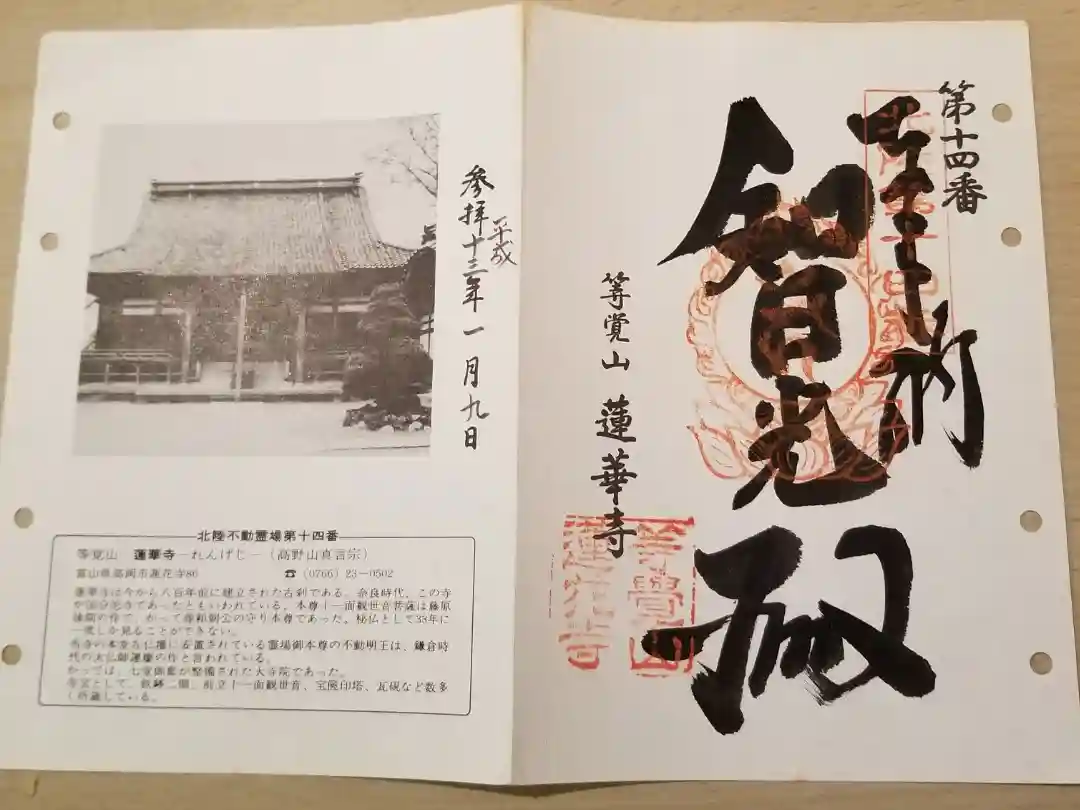 第十四番
奉拝
智日光殿
等覚山 蓮華寺
等覺山
蓮花寺印
参拝 平成
十三年一月九日
北陸不動霊場第十四番
等覚山 蓮華寺―れんげじ―(高野山真言宗)
富山県高岡市蓮花寺86 ☎(0766)23-0502
蓮華寺は今から八百年前に建立された古刹である。奈良時代、この寺
が国分尼寺であったともいわれている。本尊十一面観世音菩薩は藤原
の作で、かって源頼朝公の守り本尊であった。秘仏として33年に
一度しか見ることができない。
当寺の本堂左仏壇に安置されている霊場御本尊の不動明王は、鎌倉時
代の大仏師運慶の作と言われている。
かっては、七堂伽藍が整備された大寺院であった。
寺宝として、鉄鉢二個、前立十一面観世音、宝篋印塔、瓦硯など数多
く所蔵している。